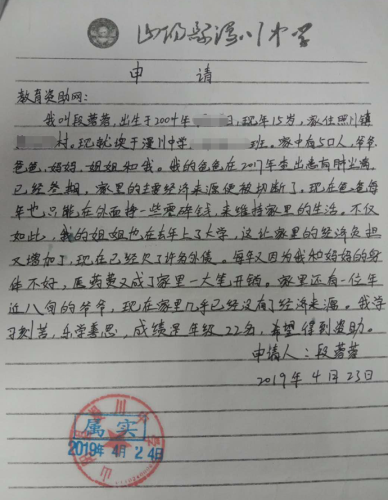 山阳县漫川中学
申 请
教育资助网:
我叫段蕾蕾,出生于2004年 ,现年15岁,家住照川镇
村。现就读于漫川中学, 班。家中有5口人,爷爷
爸爸,妈妈,姐姐和我。我的爸爸在2017年查出患有肝
已经 期,家里的主要经济来源便被切断了。现在爸爸每
年也只能在外面挣一些零碎钱,来维持家里的生活。不仅
如此,我的姐姐也在去年上了大学,这让家里的经济负担
又增加了,现在已经欠了许多外债。每年又因为我和妈妈的身
体不好,医药费又成了家里一大笔开销。家里还有一位年
近八旬的爷爷,现在家里几乎已经没有了经济来源。我学
习刻苦,乐学善思,成绩是年级22名,希望得到资助。
申请人:段蕾蕾
2019年4月23日
属实
2019年4月24日